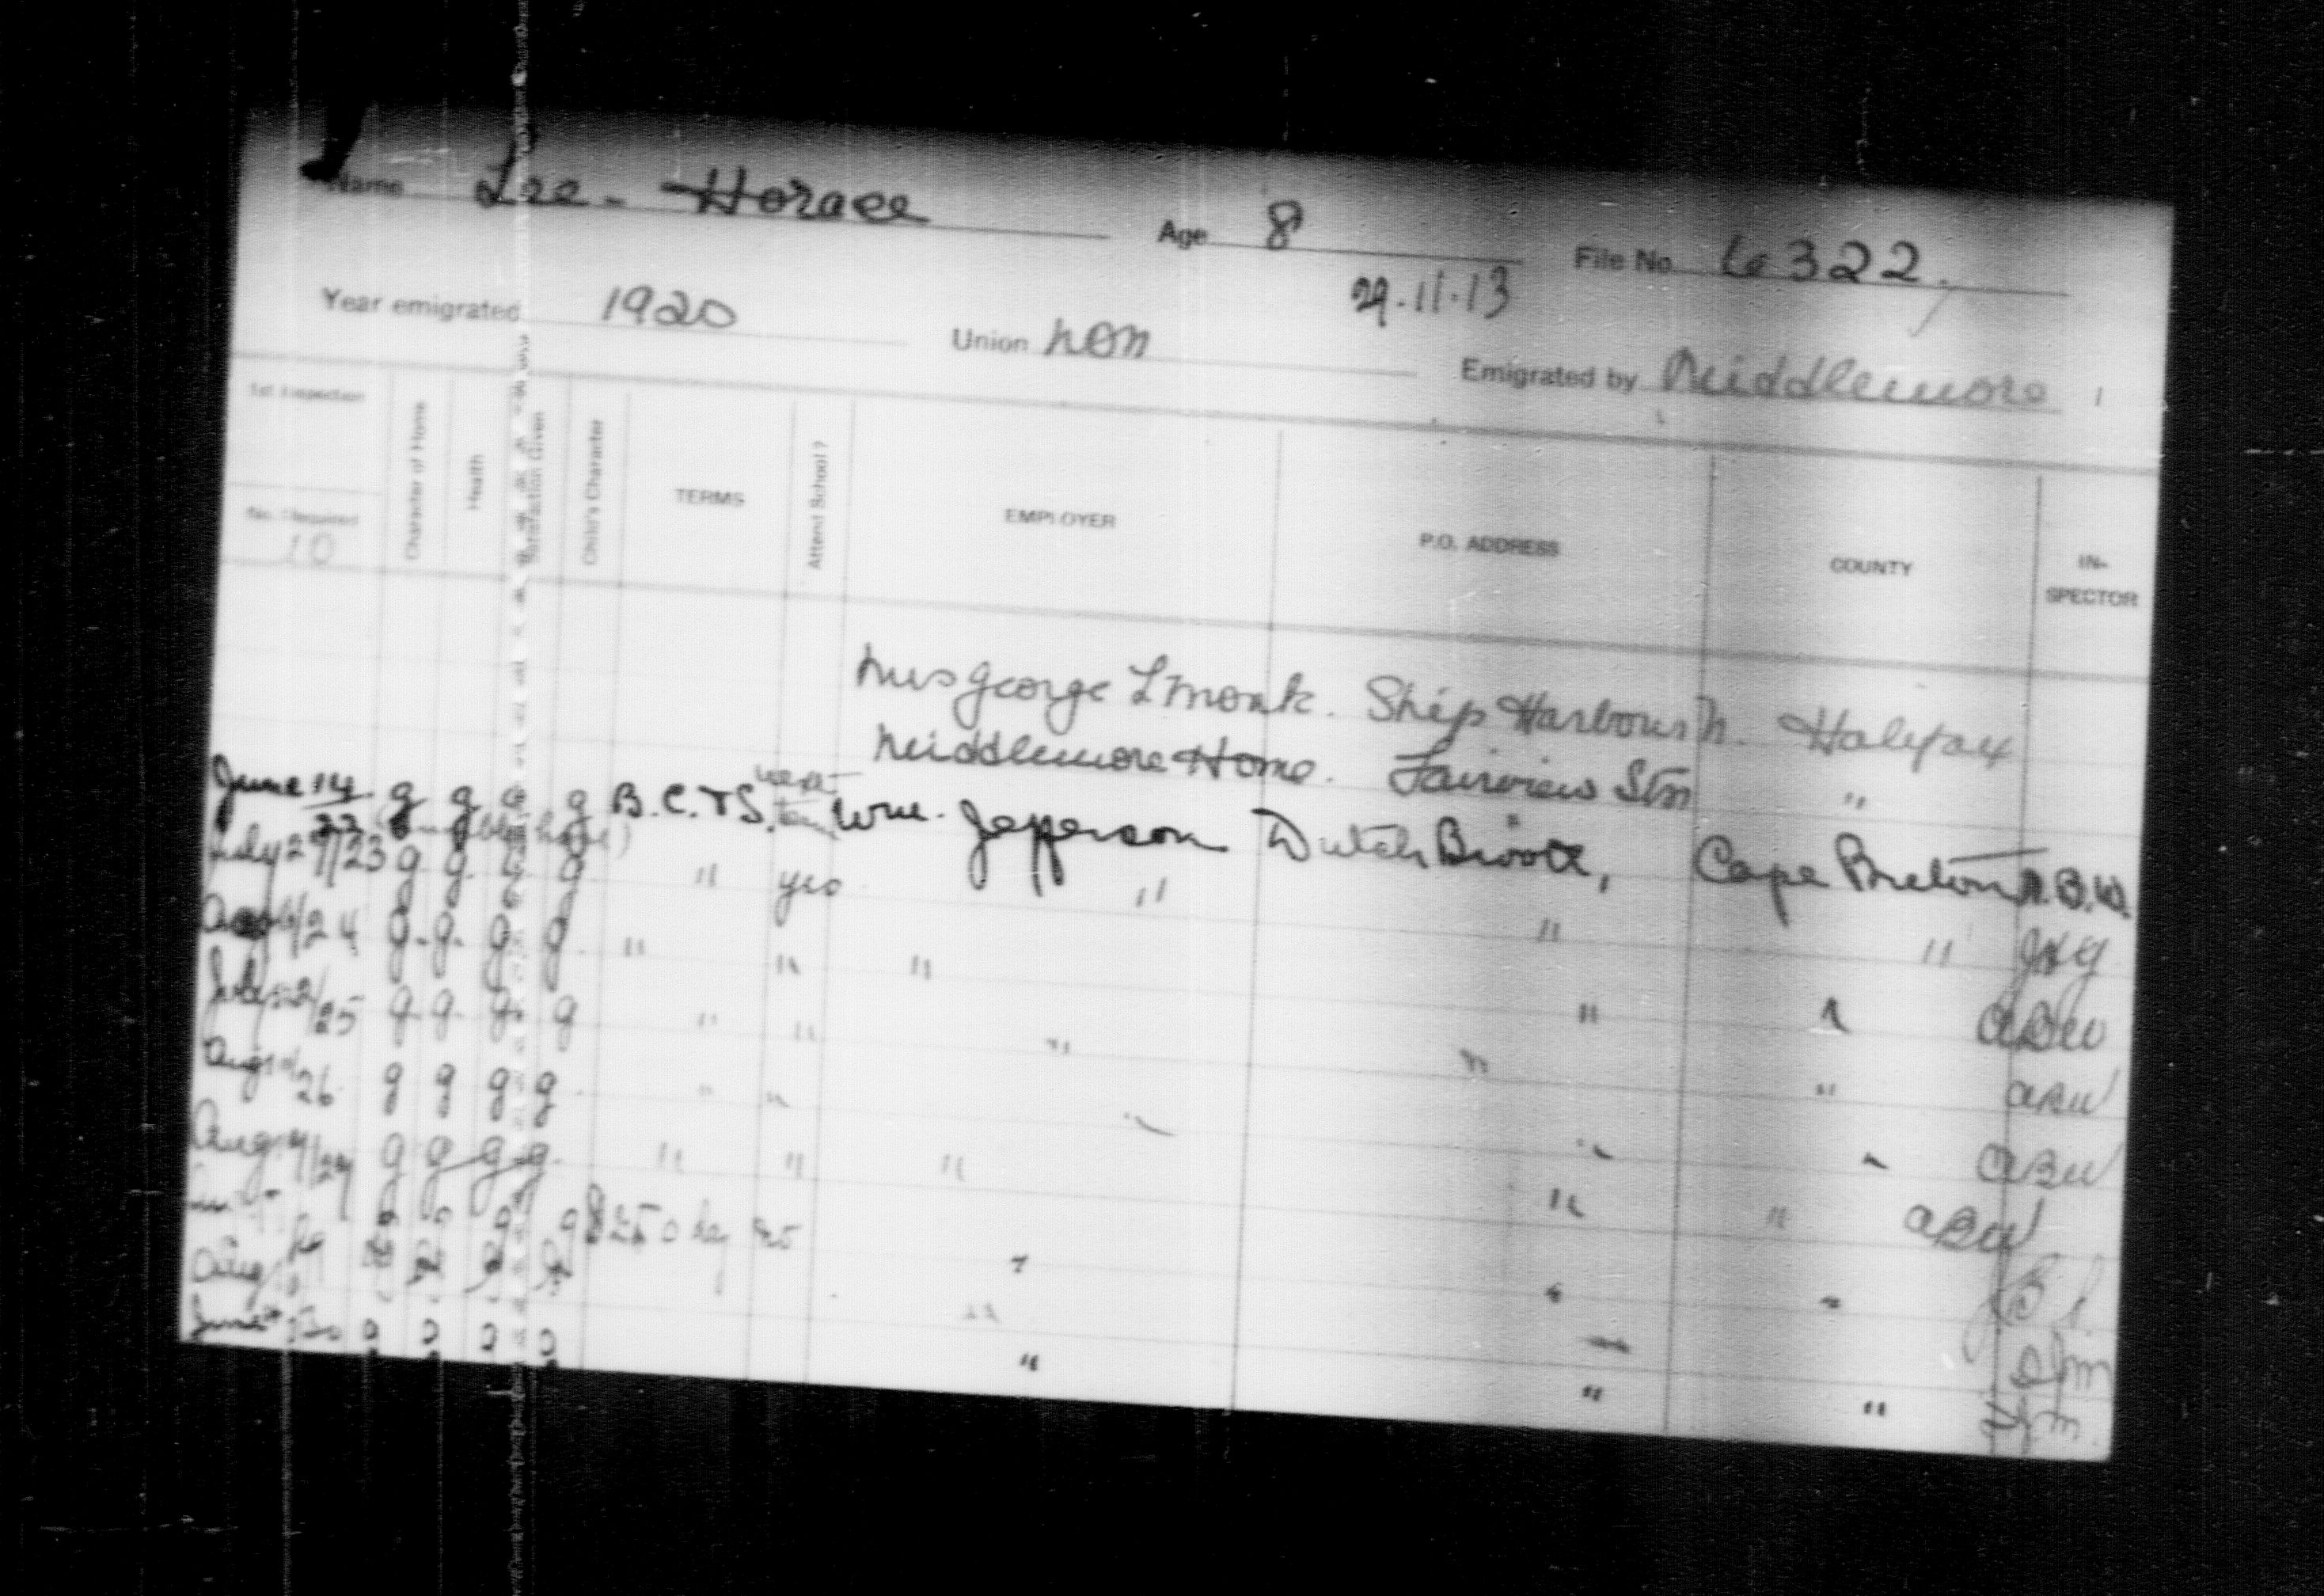 Name Lee - Horace Age 8 File No. 6322.
29.11.13
Year emigrated 1920 Union non Emigrated by Middlemore
1st Inspection
No. Required
10
Character of Home
Health
Satisfaction Given
Child's Character
TERMS
Attend School?
EMPLOYER
P.O. ADDRESS
COUNTY
IN-
SPECTOR
Mrs George L Monk. Ship Harbour N. Halifax
Middlemore Home. Fairview Stn "
June 14/22 g g g g B.C. & S. next term Wm. Jefferson Dutch Brook, Cape Breton
July 29/23 g g g g " yes " " "
/24 g. g. g. g. " " " " " ABW
July /25 g. g. g. g " " " " " ABW
Aug /26 g g g g " " " " " ABW
Aug g g g g " " " " " ABW
g g g " " "
Aug
June /30 g g g g " " "